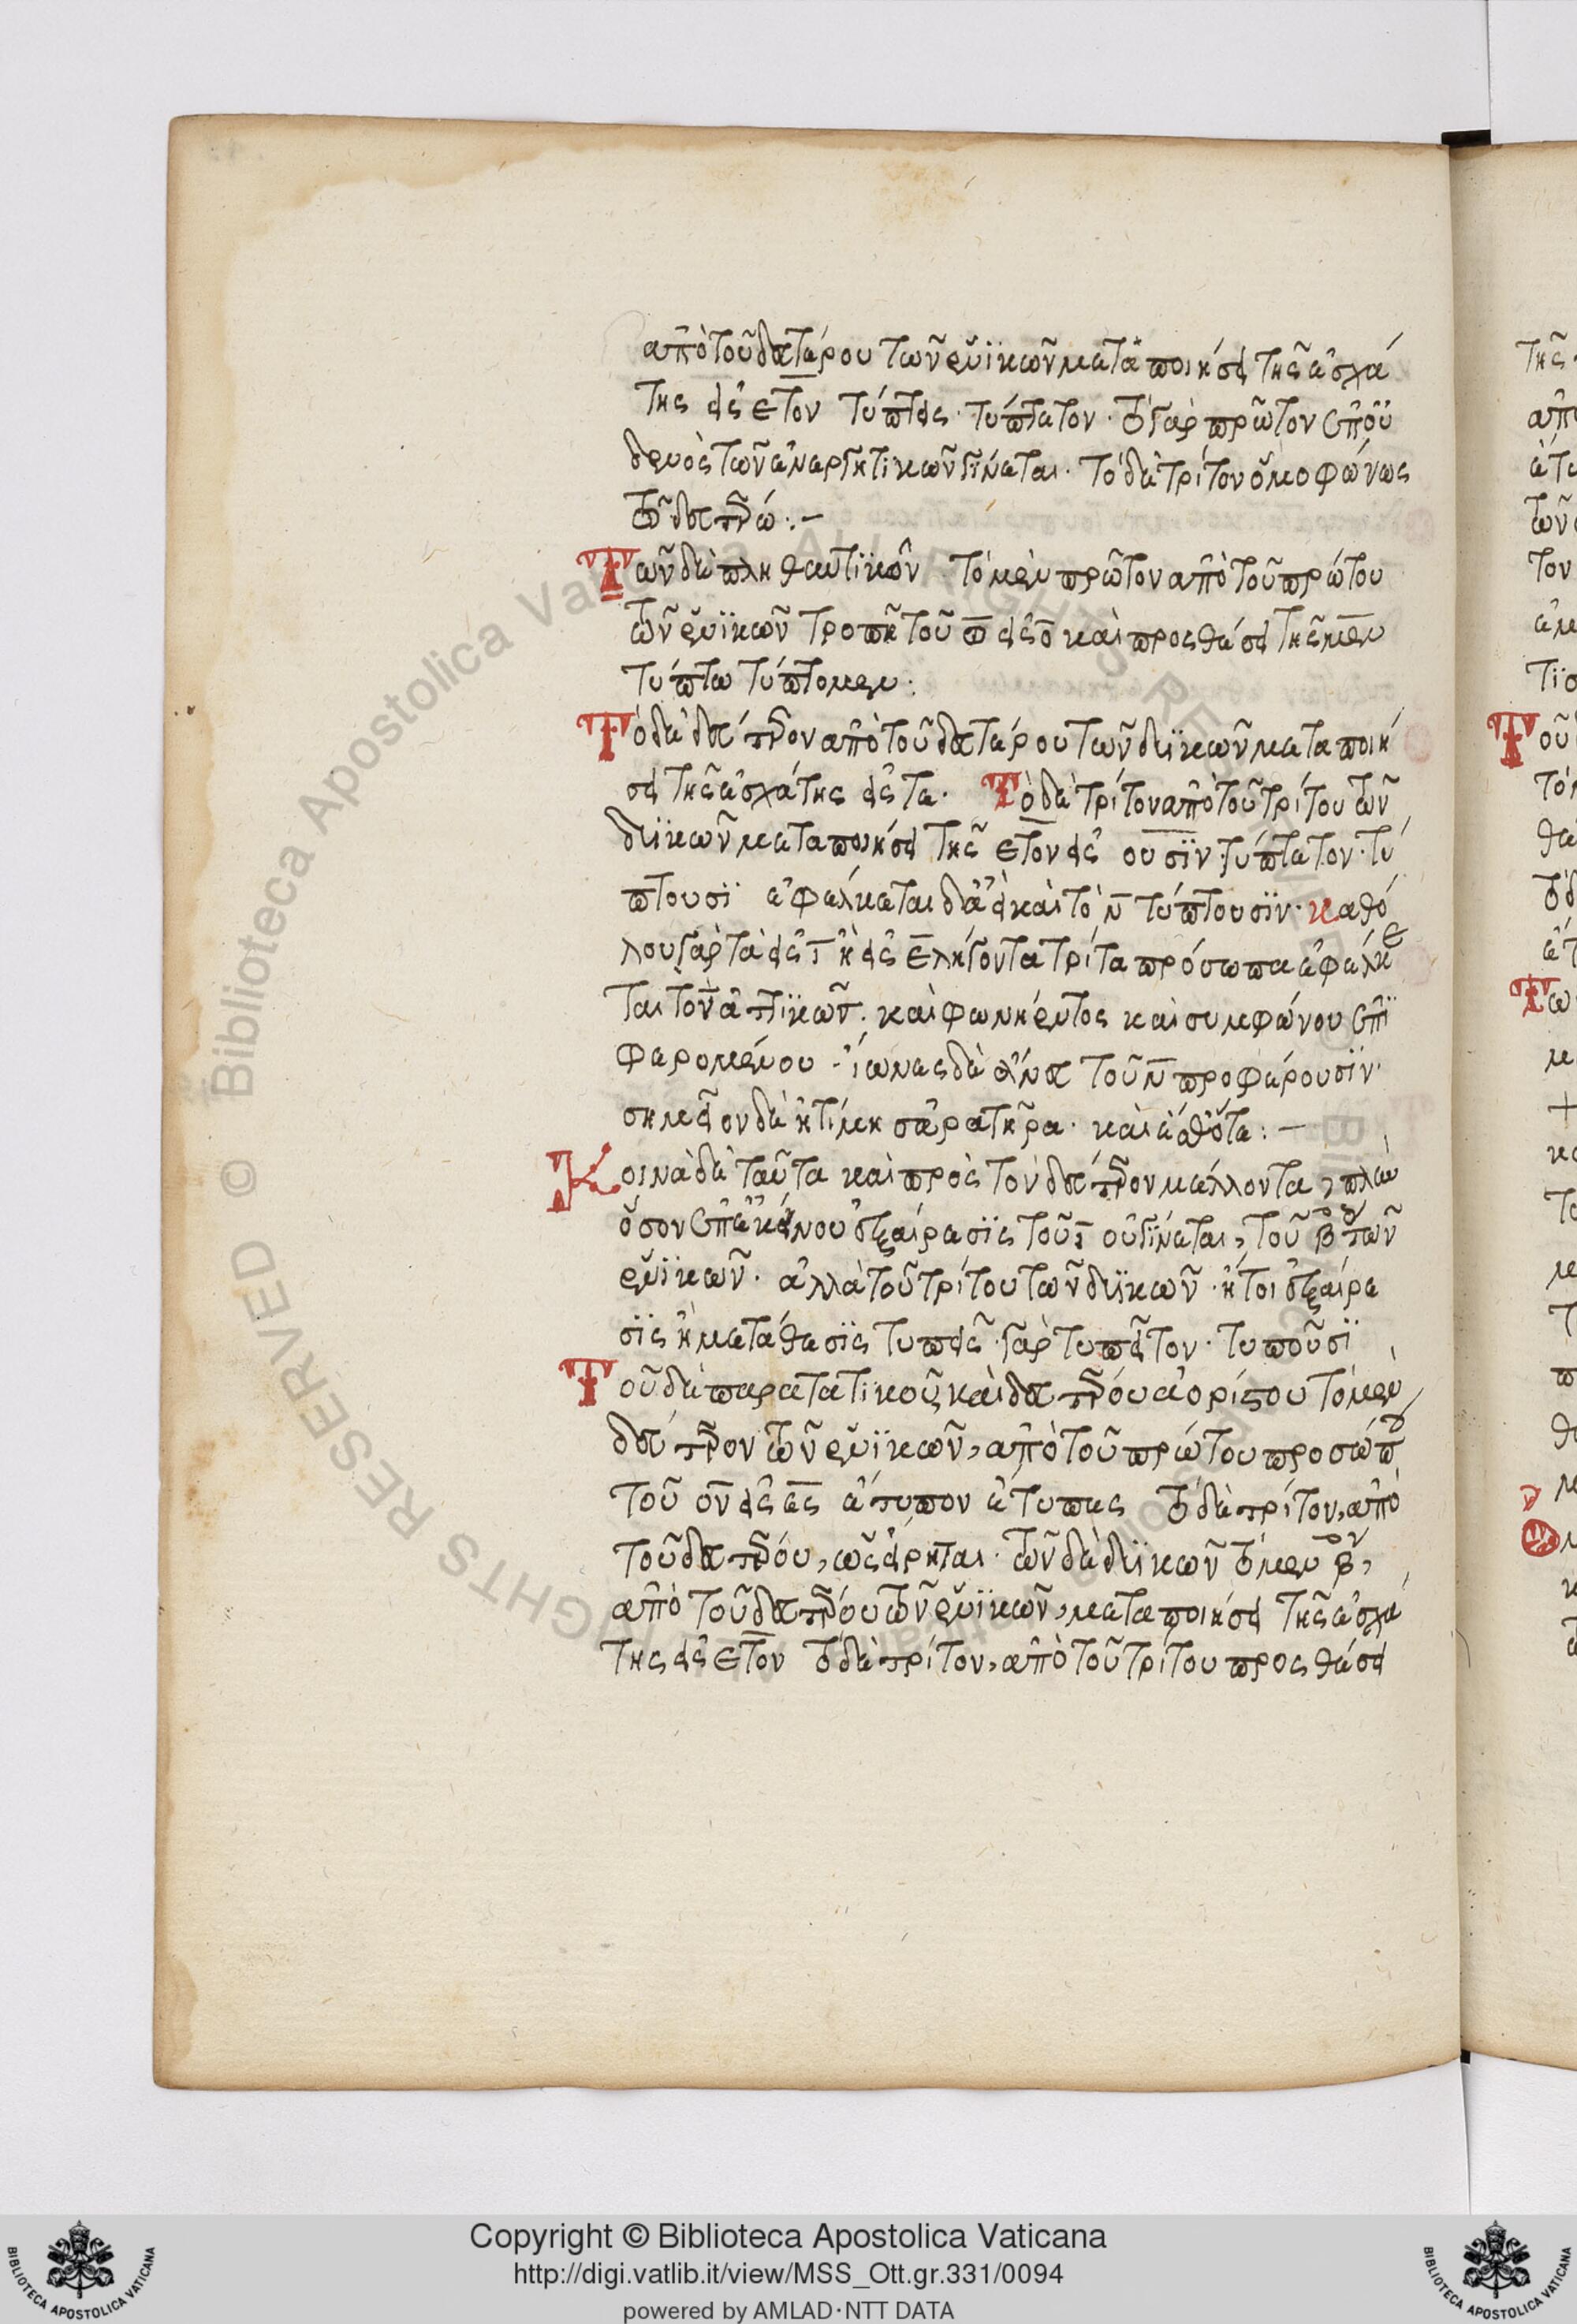 ἀπὸ τοῦ δευτέρου τῶν ἑνϊκῶν μεταποιήσει τῆς ἐσχά
της εἰς ετον τύπτεις· τύπτετον· τὸ γὰρ πρῶτον
τῶν γίνεται· τὸ δὲ τρίτον ὁμοφώνως
τῶ δευτέρω :–
Τῶν δὲ πληθυντϊκῶν τὸ μὲν πρῶτον ἀπὸ τοῦ πρώτου
τῶν ἑνϊκῶν τροπῆ τοῦ ω εἰς ο καὶ προσθέσει τῆς μεν
τύπτω τύπτομεν :
Τὸ δὲ δεύτερον ἀπὸ τοῦ δευτέρου τῶν δυϊκῶν μεταποιή
σει τῆς ἐσχάτης εἰς τε· Τὸ δὲ τρίτον ἀπὸ τοῦ τρίτου τῶν
δυϊκῶν μεταποιήσει τῆς ετον εἰς ουσϊν· τύπτετον· τύ
πτουσϊ ἐφέλκεται δὲ ἀεὶ καὶ τὸ ν τύπτουσϊν· καθό
λου γὰρ τὰ εἰς ϊ ἢ εἰς ε λήγοντα τρίτα πρόσωπα ἐφέλκε
ται τὸ ν ἀττϊκῶς· καὶ φωνήεντος καὶ συμφώνου ἐπϊ
φερομένου· ἴωνες δὲ ἄνευ τοῦ ν προφέρουσϊν·
σημεῖον δὲ
Κοινὰ δὲ ταῦτα καὶ πρὸς τὸν δεύτερον μέλλοντα, πλὴν
ὅσον ἐπ' ἐκείνου ἐξαίρεσϊς τοῦ ι οὐ γίνεται, τοῦ βου τῶν
ἑνϊκῶν· ἀλλὰ τοῦ τρίτου τῶν δυϊκῶν· ἤτοι ἐξαίρε
σϊς ἢ μετάθεσϊς τυπεῖς γὰρ τυπεῖτον· τυποῦσϊ
Τοῦ δὲ παρατατικοῦ καὶ δευτέρου ἀορίστου τὸ μὲν
δεύτερον τῶν ἑνϊκῶν, ἀπὸ τοῦ πρώτου προσώπου
τοῦ ον εἰς ες ἔτυπον ἔτυπες τὸ δὲ τρίτον, ἀπὸ
τοῦ δευτέρου, ὡς εἴρηται· τῶν δὲ δυϊκῶν τὸ μὲν βον,
ἀπὸ τοῦ δευτέρου τῶν ἑνϊκῶν, μεταποιήσει τῆς ἐσχά
της εἰς ετον τὸ δὲ τρίτον, ἀπὸ τοῦ τρίτου προσθέσει